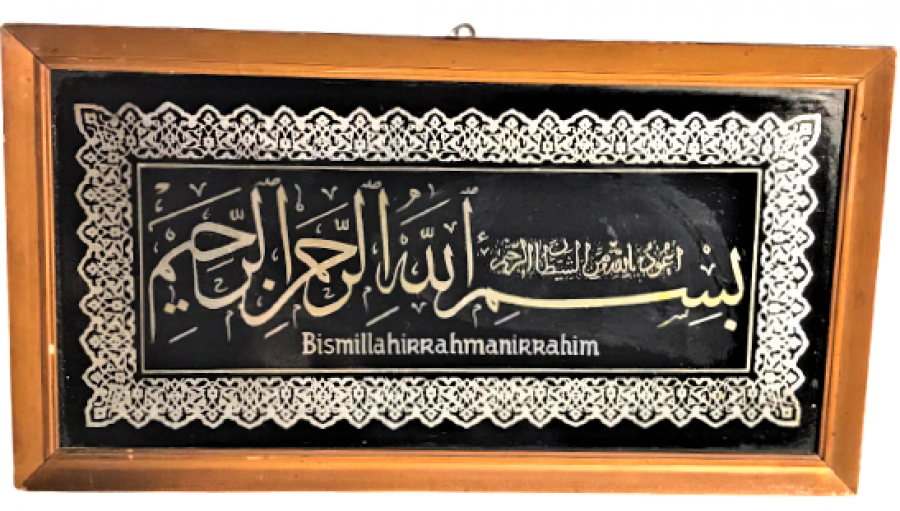 أعوذ بالله من الشيطان الرجيم
بِسْمِ اللهِ الرَّحْمٰنِ الرَّحِيْمِ
BismillahiRRahmaniRRahim